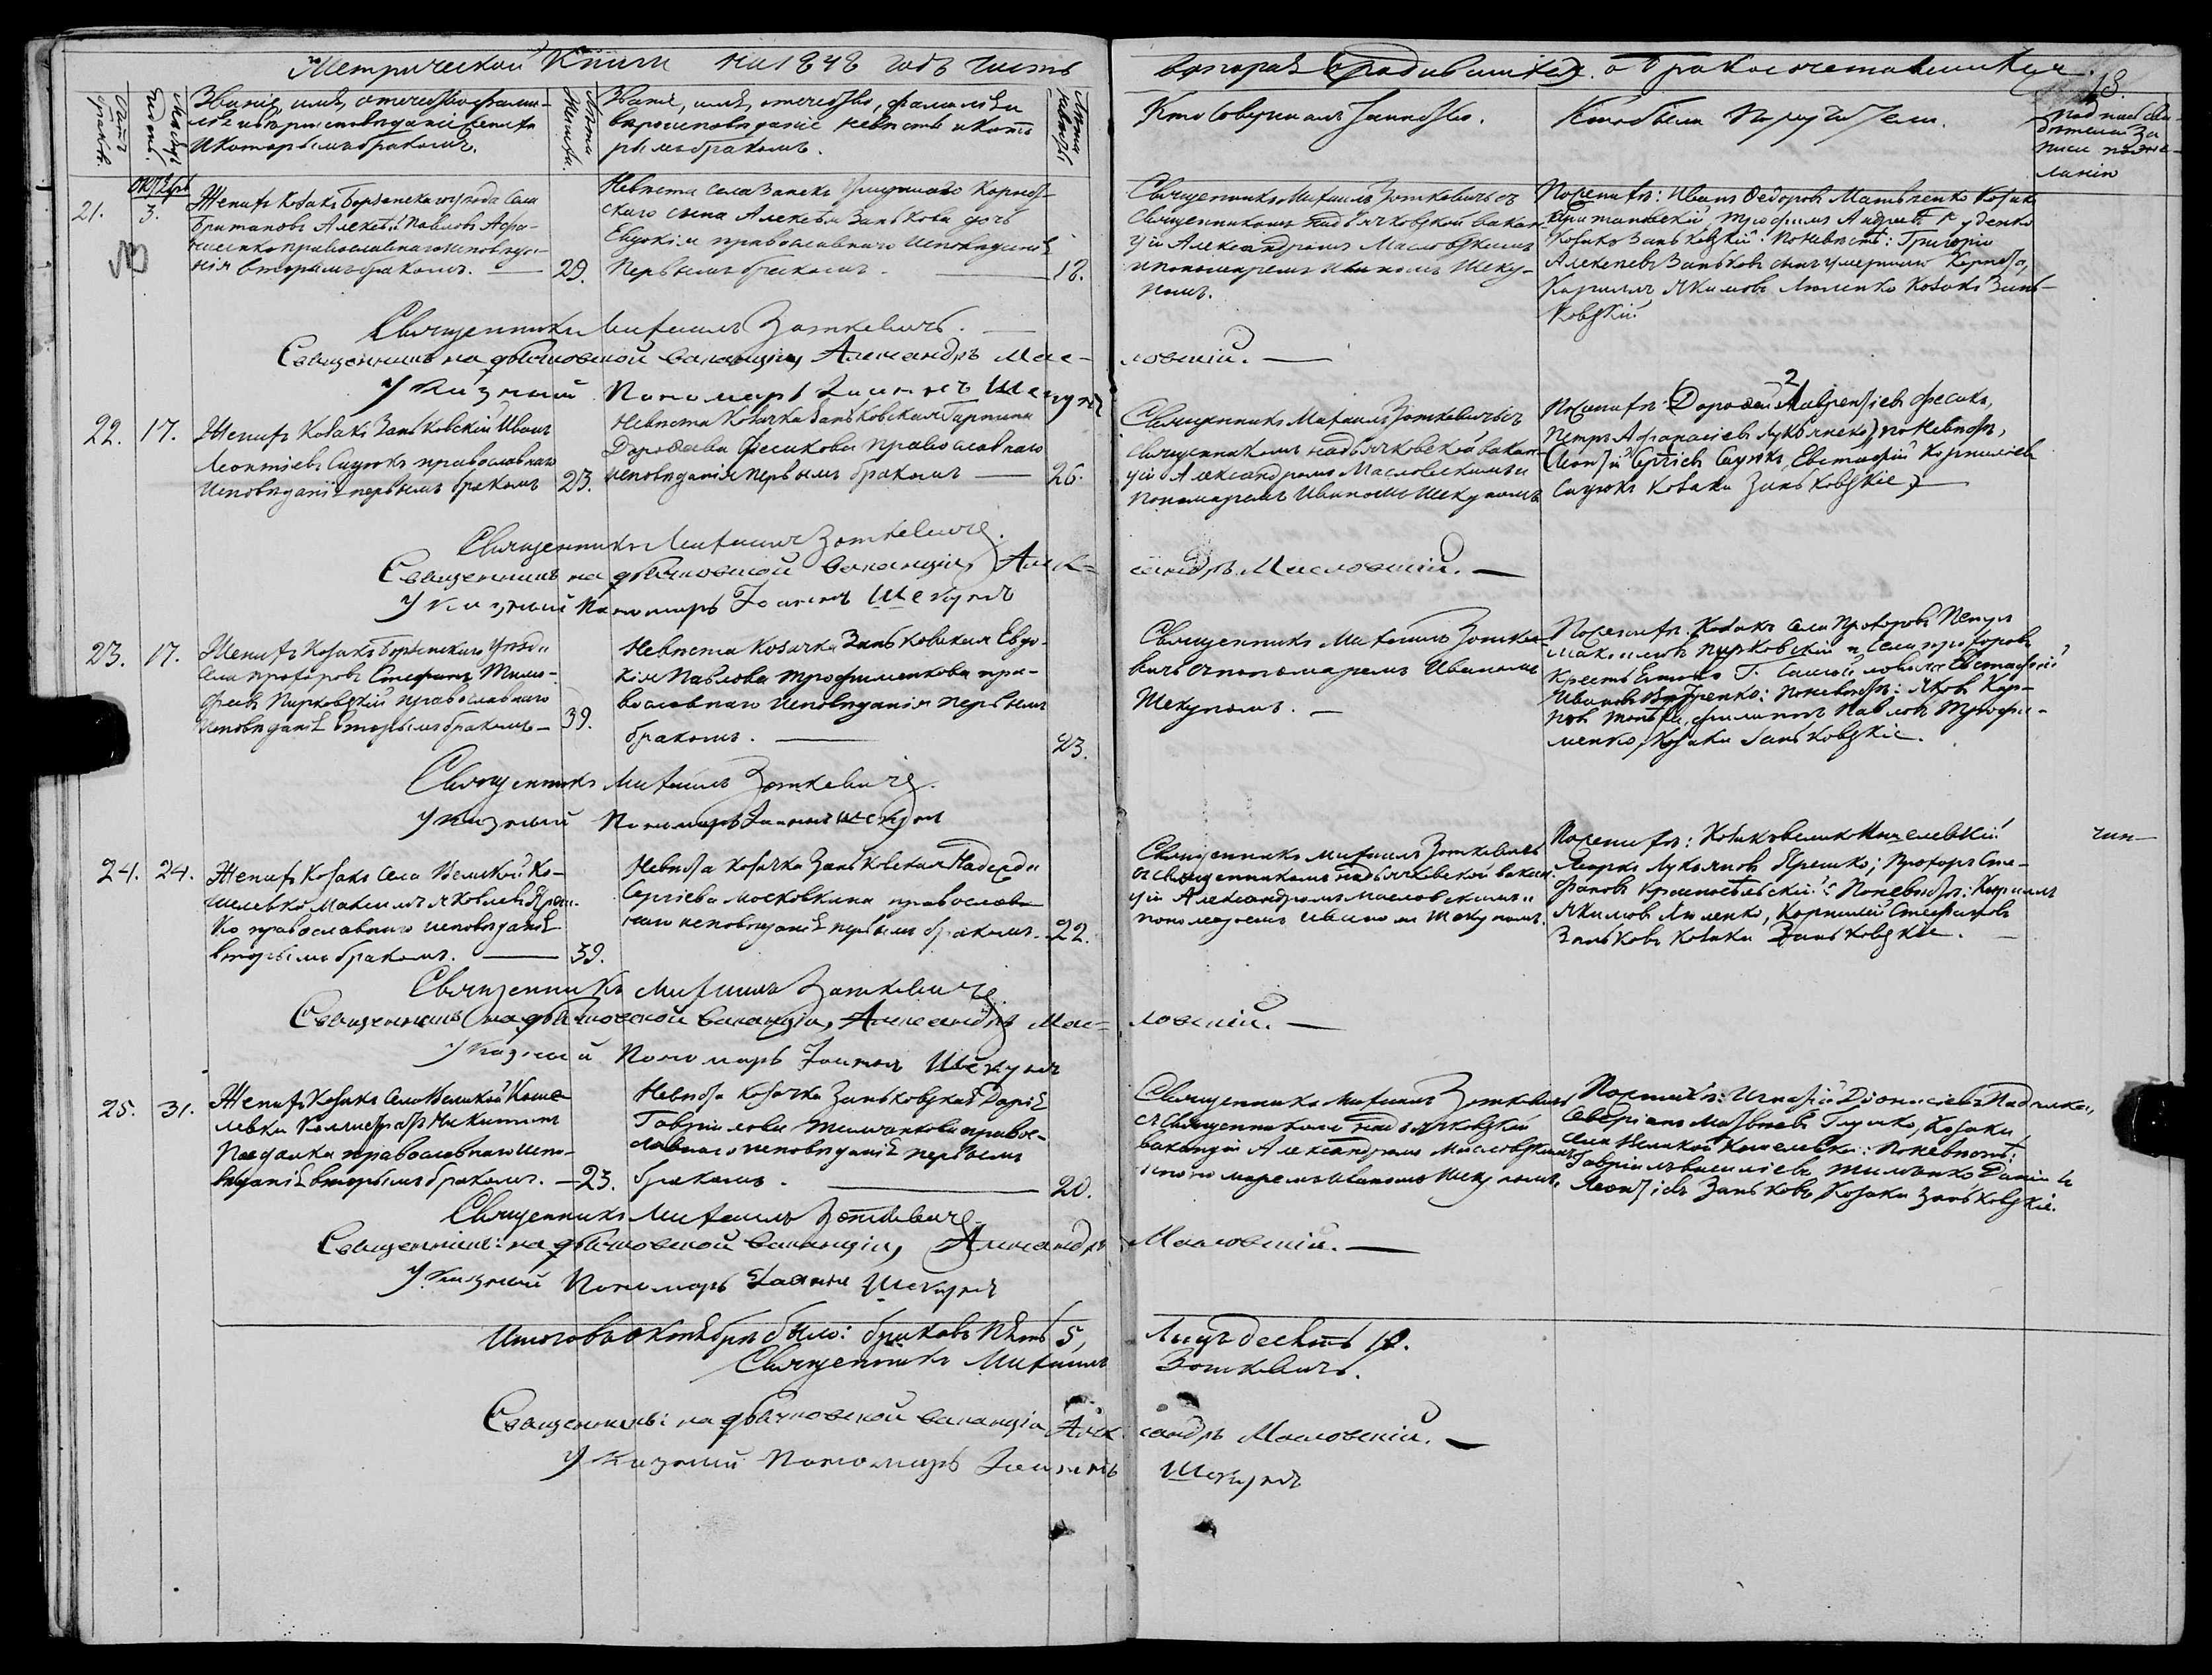 Метрической Книги на 1848 годъ часть
вторая о бракосочетавшихся.
18.
Счетъ браковъ.
Мѣсяцъ и день.
Званіе, имя, отчество, фами-
лія и вѣроисповѣданіе жениха
и которымъ бракомъ.
Лѣта жениха.
Званіе, имя, отчество, фамилія и
вѣроисповѣданіе невѣсты и кото-
рымъ бракомъ.
Лѣта невѣсты
Кто совершалъ таинство.
Кто были поручители.
Октябрь
21.
3.
Женихъ козакъ Борзенскаго уѣзда села
Британовъ Алексѣй Павловъ Афа-
насенко православнаго исповѣда-
нія вторымъ бракомъ.
29.
Невѣста села Занекъ умершаго Корнет-
скаго сына Алексѣя Занькова дочь
Евдокія православнаго исповѣданія
первымъ бракомъ.
18.
Священникъ Михаилъ Зоткевичъ съ
священникомъ на дьячковской вакан-
ціи Александромъ Масловскимъ
и пономаремъ Иваномъ Шеку-
номъ.
По женихѣ: Иванъ Федоровъ Матвѣенко козакъ
Британскій, Трофимъ Андреевъ
козакъ Заньковскій: по невѣстѣ: Григорій
Алексѣевъ Заньковъ сынъ умершаго Корнета,
Кириллъ Якимовъ Люленко козакъ Зань-
ковскій.
Священникъ Михаилъ Зоткевичъ.
Священникъ на дьячковской ваканціи, Александръ Мас-
ловскій.
Указный Пономарь Іоаннъ Шекунъ
22.
17.
Женихъ козакъ Заньковскій Иванъ
Леонтіевъ Сидюкъ православнаго
исповѣданія первымъ бракомъ
23.
Невѣста козачка Заньковская
Дорофеева Фесикова православнаго
исповѣданія первымъ бракомъ
26.
Священникъ Михаилъ Зоткевичъ съ
священникомъ на дьячковской вакан-
ціи Александромъ Масловскимъ и
пономаремъ Иваномъ Шекуномъ
По женихѣ: Дорофей Лаврентіевъ Фесикъ,
Петръ Афанасіевъ по невѣстѣ,
Леонтій Сергіевъ Сидюкъ, Евстафій Корниліевъ
Сидюкъ козаки Заньковскіе
Священникъ Михаилъ Зоткевичъ.
Священникъ на дьячковской ваканціи, Алек-
сандръ Масловскій.
Указный Пономарь Іоаннъ Шекунъ
23.
17.
Женихъ козакъ Борзенскаго уѣзда
села Прохоровъ Стефанъ Тимо-
феевъ Пирковскій православнаго
исповѣданія вторымъ бракомъ
39.
Невѣста козачка Заньковская Евдо-
кія Павлова Трофименкова пра-
вославнаго исповѣданія первымъ
бракомъ.
23.
Священникъ Михаилъ Зотке-
вичъ съ пономаремъ Иваномъ
Шекуномъ.
По женихѣ: козакъ села Прохоровъ Петръ
Максимовъ Пирковскій и села Прохоровъ
Евстафій
Ивановъ: по невѣстѣ: Яковъ Кар-
повъ, Филиппъ Павловъ Трофи-
менко, козаки Заньковскіе.
Священникъ Михаилъ Зоткевичъ.
Указный Пономарь Іоаннъ Шекунъ
24.
24.
Женихъ козакъ села Великой Ко-
шелевки Максимъ Яковлевъ Яреш-
ко православнаго исповѣданія
вторымъ бракомъ.
39.
Невѣста козачка Заньковская Надежда
Сергіева Московкина православ-
наго исповѣданія первымъ бракомъ.
22.
Священникъ Михаилъ Зоткевичъ
съ священникомъ на дьячковской вакан-
ціи Александромъ Масловскимъ и
пономаремъ Иваномъ Шекуномъ.
По женихѣ: козаки великокошелевскій
Марко Лукьяновъ Ярешко; Прохоръ Сте-
фановъ: по невѣстѣ: Кириллъ
Якимовъ Люленко, Корнилій Стефановъ
Заньковъ козаки Заньковскіе.
Священникъ Михаилъ Зоткевичъ.
Священникъ на дьячковской ваканціи, Александръ Мас-
ловскій.
Указный Пономарь Іоаннъ Шекунъ
25.
31.
Женихъ козакъ села Великой Коше-
левки Каллистратъ Никитинъ
Падалка православнаго испо-
вѣданія вторымъ бракомъ.
23.
Невѣста козачка Заньковская Дарія
Гавріилова Тимчикова право-
славнаго исповѣданія первымъ
бракомъ.
20.
Священникъ Михаилъ Зоткевичъ
съ священникомъ на дьячковской
ваканціи Александромъ Масловскимъ
и пономаремъ Иваномъ Шекуномъ.
По женихѣ: Игнатій Діонисіевъ Падалка,
Севиріанъ Матвѣевъ козаки
села Великой Кошелевки: по невѣстѣ:
Гавріилъ Василіевъ Данило
Леонтіевъ Заньковъ, козаки Заньковскіе.
Священникъ Михаилъ Зоткевичъ.
Священникъ на дьячковской ваканціи, Александръ
Масловскій.
Указный Пономарь Іоаннъ Шекунъ
Итого въ октябрѣ было: браковъ пять 5,
лицъ десять 10.
Священникъ Михаилъ
Зоткевичъ.
Священникъ на дьячковской ваканціи Алек-
сандръ Масловскій.
Указный Пономарь Іоаннъ
Шекунъ